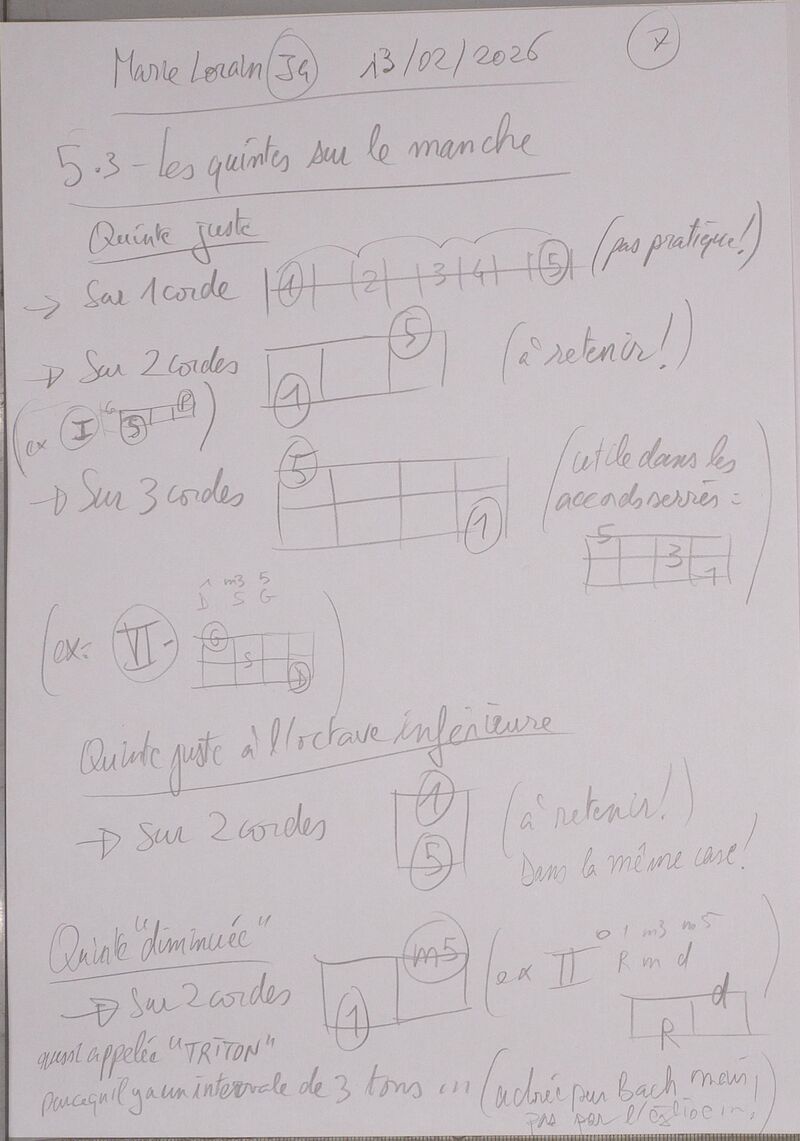 Marie Lorain 13/02/2026 7
5.3 - Les quintes sur le manche
Quinte juste
→ Sur 1 corde 1 2 3 4 5 (pas pratique!)
→ Sur 2 cordes 1 5 (à retenir!)
(ex I G 5 )
→ Sur 3 cordes 5 1 (utile dans les
accords serrés =
5 3 1)
1 m3 5
D S G
(ex= VI- G S D)
Quinte juste à l'octave inférieure
→ Sur 2 cordes 1 5 (à retenir!)
Dans la même case!
Quinte "diminuée"
→ Sur 2 cordes 1 m5 (ex II 1 m3 m5
R m d
R d)
aussi appelée "TRITON"
parcequ'il y a un intervale de 3 tons (adorée par Bach mais
pas par l'église